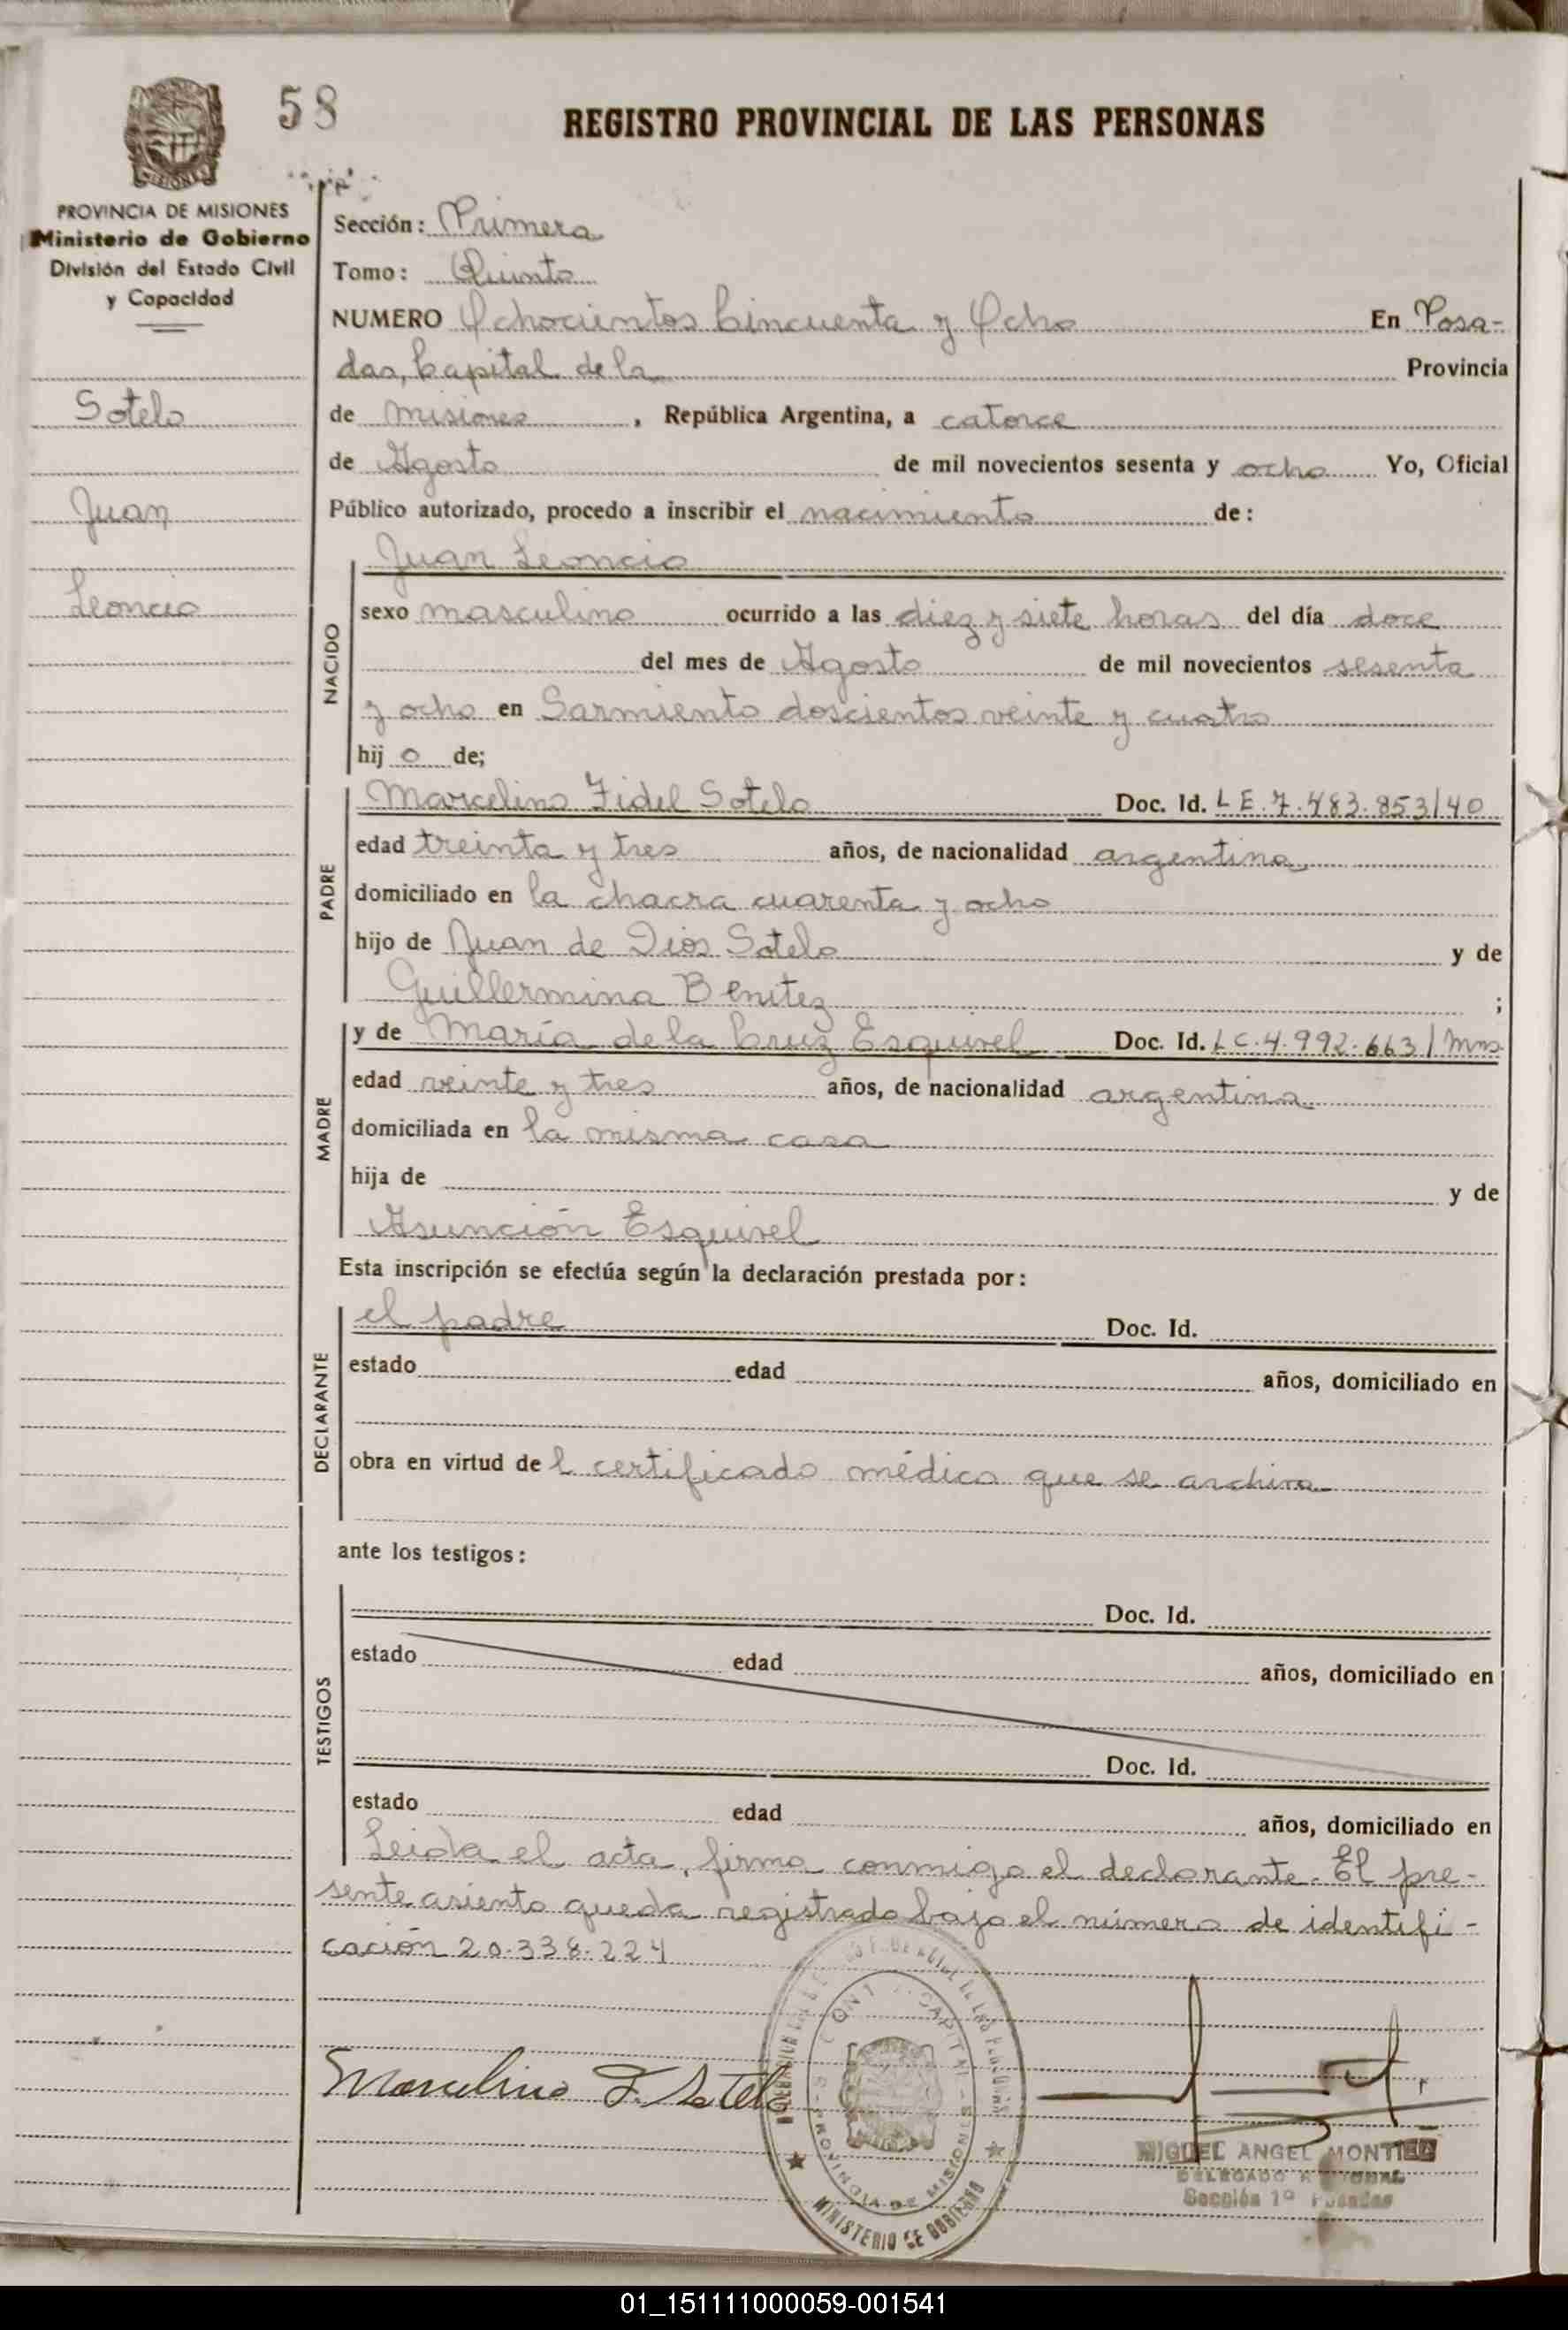 58
REGISTRO PROVINCIAL DE LAS PERSONAS
MISIONES
PROVINCIA DE MISIONES
Ministerio de Gobierno
División del Estado Civil
y Capacidad
Sotelo
Juan
Leoncio
Sección: Primera
Tomo: Quinto
NUMERO Ochocientos Cincuenta y Ocho En Posa-
das, Capital de la Provincia
de Misiones, República Argentina, a catorce
de Agosto de mil novecientos sesenta y ocho Yo, Oficial
Público autorizado, procedo a inscribir el nacimiento de:
NACIDO
Juan Leoncio
sexo masculino ocurrido a las diez y siete horas del día doce
del mes de Agosto de mil novecientos sesenta
y ocho en Sarmiento doscientos veinte y cuatro
hij o de;
PADRE
Marcelino Fidel Sotelo Doc. Id. L E. 7.483.853/40
edad treinta y tres años, de nacionalidad argentina
domiciliado en la chacra cuarenta y ocho
hijo de Juan de Dios Sotelo y de
Guillermina Benitez ;
MADRE
y de María de la Cruz Esquivel Doc. Id. L C. 4.992.663/Mns
edad veinte y tres años, de nacionalidad argentina
domiciliada en la misma casa
hija de y de
Asunción Esquivel
Esta inscripción se efectúa según la declaración prestada por:
DECLARANTE
el padre Doc. Id.
estado edad años, domiciliado en
obra en virtud de l certificado médico que se archiva
ante los testigos:
TESTIGOS
Doc. Id.
estado edad años, domiciliado en
Doc. Id.
estado edad años, domiciliado en
Leida el acta, firma conmigo el declarante. El pre-
sente asiento queda registrado bajo el número de identifi-
cación 20.338.224
Marcelino F. Sotelo
PROVINCIA DE MISIONES
MINISTERIO DE GOBIERNO
MIGUEL ANGEL MONTIEL
DELEGADO
Sección 1º Posadas
01_151111000059-001541